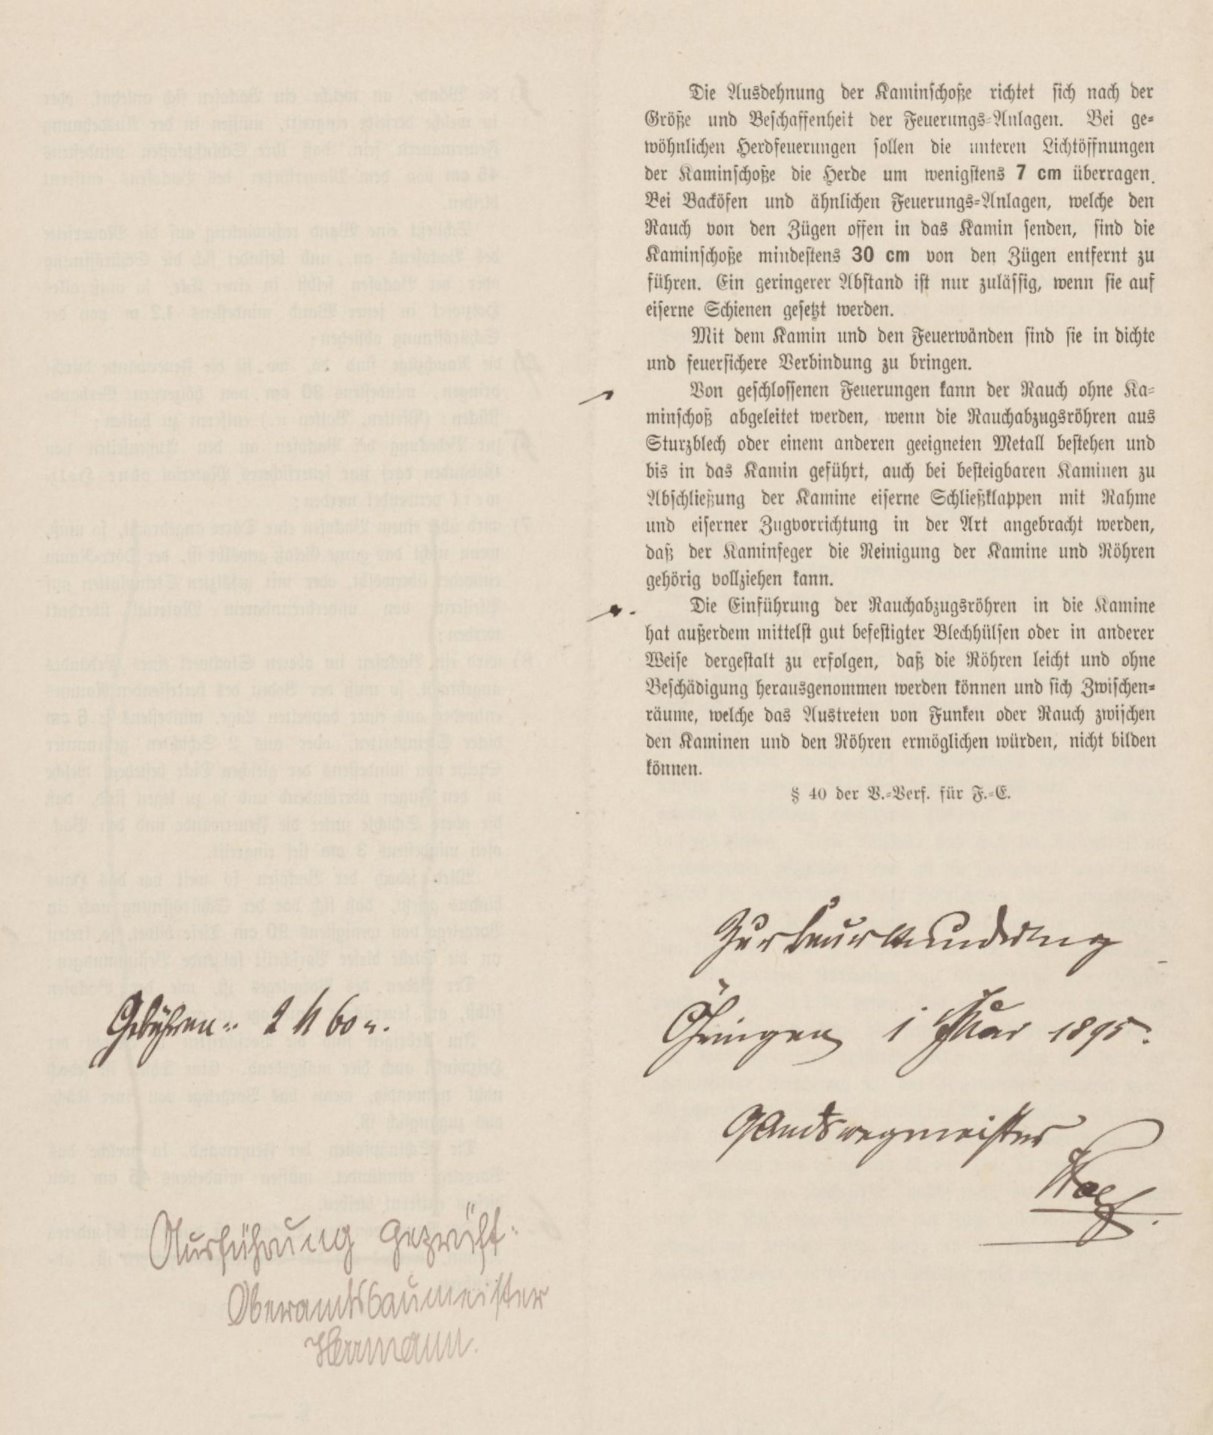 Die Ausdehnung der Kaminschoße richtet sich nach der
Größe und Beschaffenheit der Feuerungs-Anlagen. Bei ge-
wöhnlichen Herdfeuerungen sollen die unteren Lichtöffnungen
der Kaminschoße die Herde um wenigstens 7 cm überragen.
Bei Backöfen und ähnlichen Feuerungs-Anlagen, welche den
Rauch von den Zügen offen in das Kamin senden, sind die
Kaminschoße mindestens 30 cm von den Zügen entfernt zu
führen. Ein geringerer Abstand ist nur zulässig, wenn sie auf
eiserne Schienen gesetzt werden.
Mit dem Kamin und den Feuerwänden sind sie in dichte
und feuersichere Verbindung zu bringen.
Von geschlossenen Feuerungen kann der Rauch ohne Ka-
minschoß abgeleitet werden, wenn die Rauchabzugsröhren aus
Sturzblech oder einem anderen geeigneten Metall bestehen und
bis in das Kamin geführt, auch bei besteigbaren Kaminen zu
Abschließung der Kamine eiserne Schließklappen mit Rahme
und eiserner Zugvorrichtung in der Art angebracht werden,
daß der Kaminfeger die Reinigung der Kamine und Röhren
gehörig vollziehen kann.
Die Einführung der Rauchabzugsröhren in die Kamine
hat außerdem mittelst gut befestigter Blechhülsen oder in anderer
Weise dergestalt zu erfolgen, daß die Röhren leicht und ohne
Beschädigung herausgenommen werden können und sich Zwischen-
räume, welche das Austreten von Funken oder Rauch zwischen
den Kaminen und den Röhren ermöglichen würden, nicht bilden
können.
§ 40 der V.-Verf. für F.-E.
Zur Beurkundung
1895.
Gebühren 2 M 60
Ausführung geprüft.
Oberamtsbaumeister
Hermann.